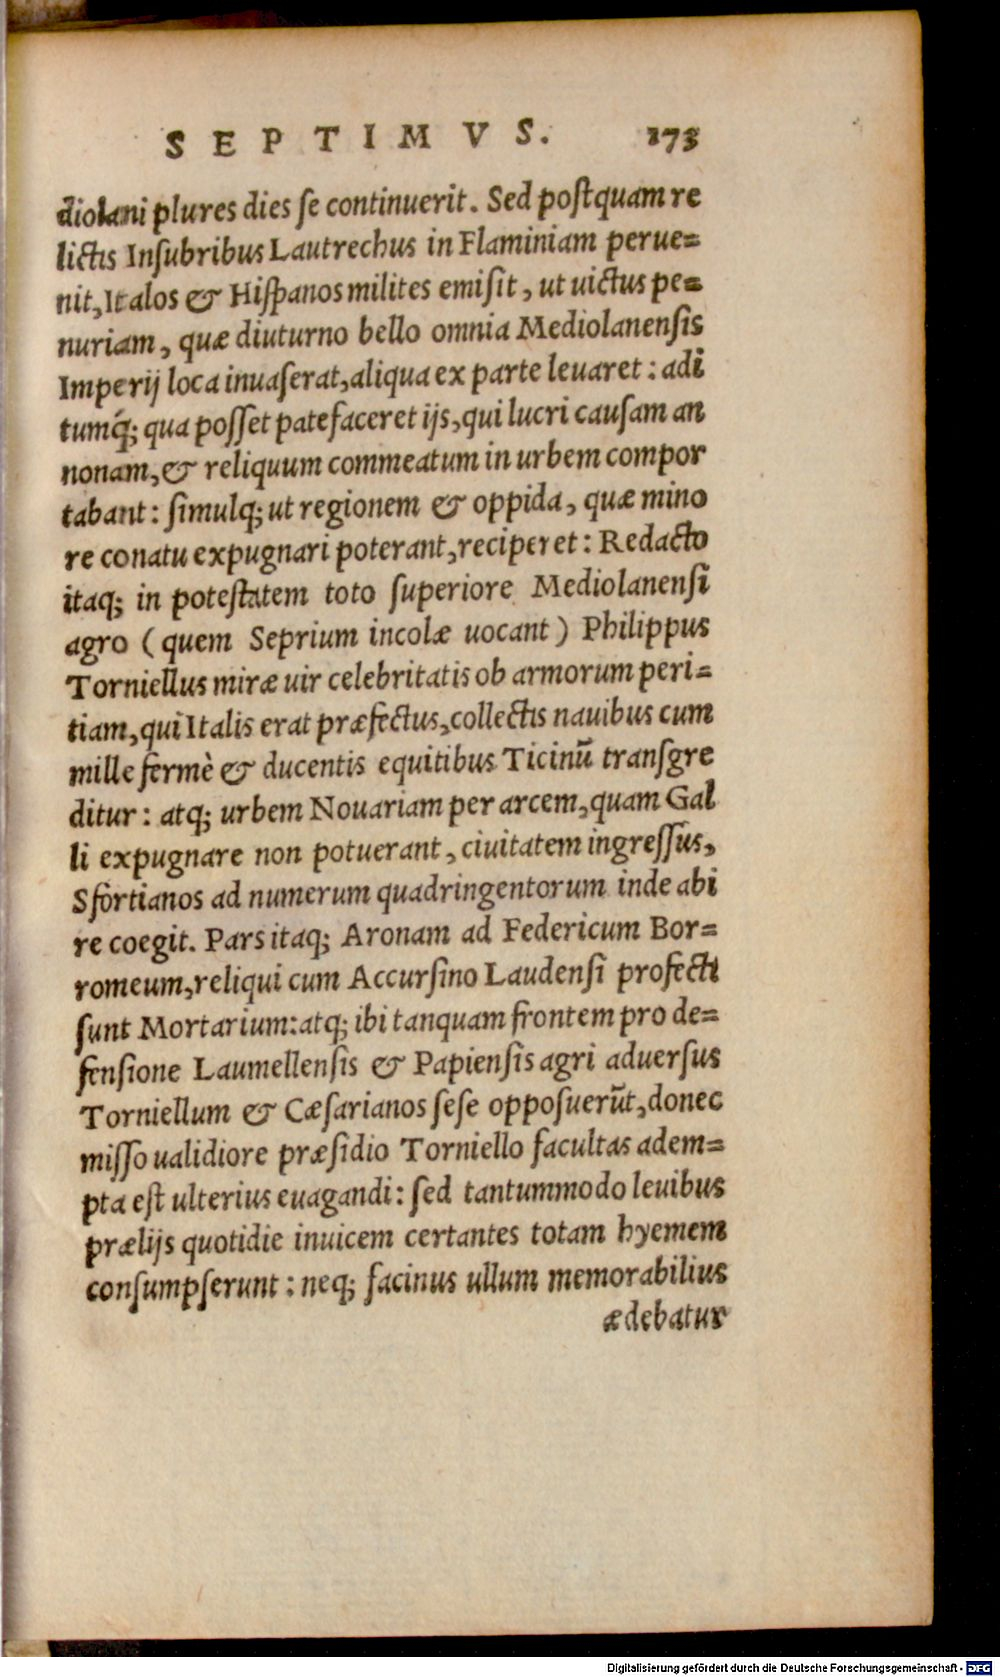 SEPTIMVS. 173
diolani plures dies ſe continuerit. Sed poſtquam re
lictis Inſubribus Lautrechus in Flaminiam perue=
nit, Italos & Hiſpanos milites emiſit, ut uictus pe=
nuriam, quæ diuturno bello omnia Mediolanenſis
Imperij loca inuaſerat, aliqua ex parte leuaret: adi
tumq́; qua poſſet patefaceret ijs, qui lucri cauſam an
nonam, & reliquum commeatum in urbem compor
tabant: ſimulq; ut regionem & oppida, quæ mino
re conatu expugnari poterant, reciperet: Redacto
itaq; in poteſtatem toto ſuperiore Mediolanenſi
agro (quem Seprium incolæ uocant) Philippus
Torniellus miræ uir celebritatis ob armorum peri=
tiam, qui Italis erat præfectus, collectis nauibus cum
mille fermè & ducentis equitibus Ticinū tranſgre
ditur: atq; urbem Nouariam per arcem, quam Gal
li expugnare non potuerant, ciuitatem ingreſſus,
Sfortianos ad numerum quadringentorum inde abi
re coegit. Pars itaq; Aronam ad Federicum Bor=
romeum, reliqui cum Accurſino Laudenſi profecti
ſunt Mortarium: atq; ibi tanquam frontem pro de=
fenſione Laumellenſis & Papienſis agri aduerſus
Torniellum & Cæſarianos ſeſe oppoſuerūt, donec
miſſo ualidiore præſidio Torniello facultas adem=
pta eſt ulterius euagandi: ſed tantummodo leuibus
prælijs quotidie inuicem certantes totam hyemem
conſumpſerunt: neq; facinus ullum memorabilius
ædebatur
Digitalisierung gefördert durch die Deutsche Forschungsgemeinschaft - DFG